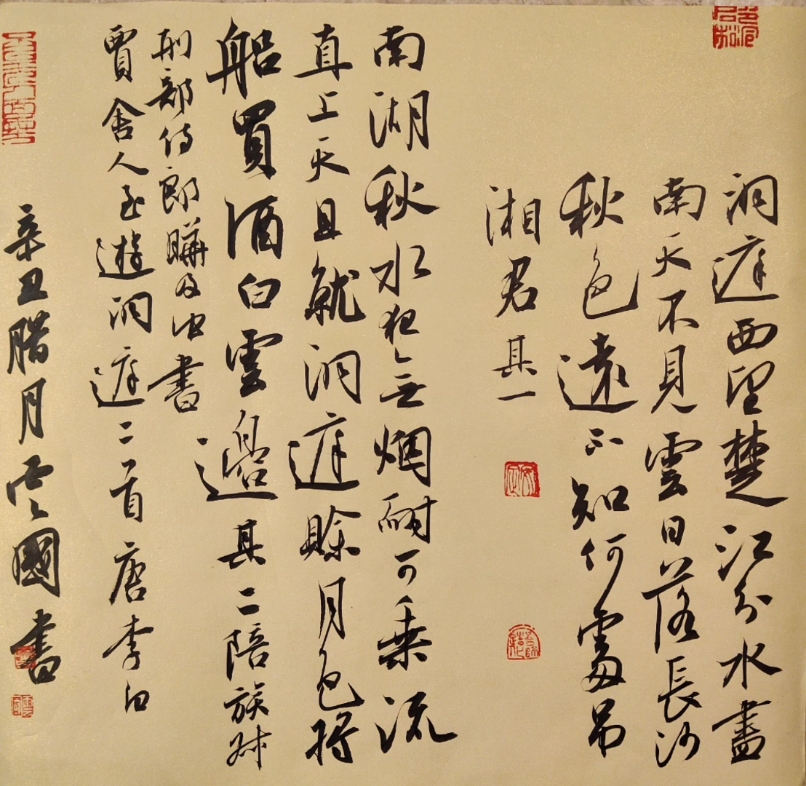 洞庭西望楚江分水盡
南天不見雲日落長沙
秋色遠不知何處吊
湘君其一
南湖秋水夜無烟耐可乘流
直上天且就洞庭賒月色將
船買酒白雲邊其二陪族叔
刑部侍郎曄及中書
賈舍人至遊洞庭二首唐李白
辛丑腊月雲國書